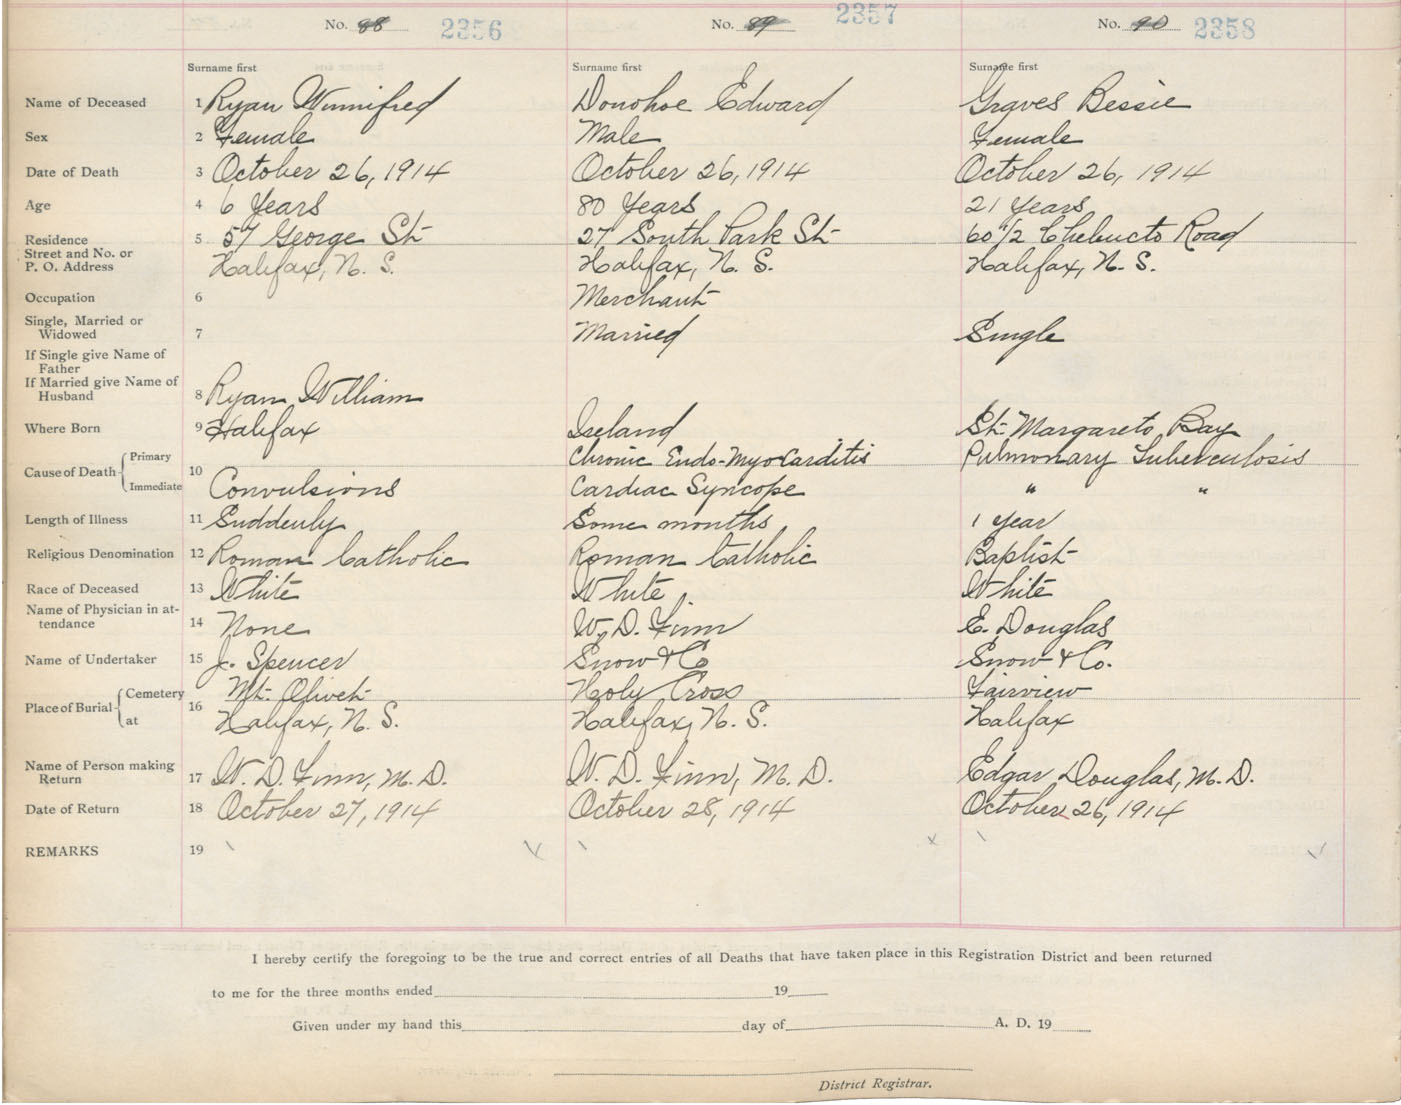 No. 88 2356 No. 89 2357 No. 90 2358
Surname first Surname first Surname first
Name of Deceased 1 Ryan Winnifred Donohoe Edward Graves Bessie
Sex 2 Female Male Female
Date of Death 3 October 26, 1914 October 26, 1914 October 26, 1914
Age 4 6 Years 80 Years 21 Years
Residence 5 57 George St 27 South Park St 60 1/2 Chebucto Road
Street and No. or
P. O. Address Halifax, N. S. Halifax, N. S. Halifax, N. S.
Occupation 6 Merchant
Single, Married or
Widowed 7 Married Single
If Single give Name of
Father
If Married give Name of
Husband 8 Ryan William
Where Born 9 Halifax Ireland St. Margarets Bay
Cause of Death Primary 10 Chronic Endo-Myocarditis Pulmonary Tuberculosis
Immediate Convulsions Cardiac Syncope " "
Length of Illness 11 Suddenly Some months 1 year
Religious Denomination 12 Roman Catholic Roman Catholic Baptist
Race of Deceased 13 White White White
Name of Physician in at-
tendance 14 None W. D. Finn E. Douglas
Name of Undertaker 15 J. Spencer Snow & Co Snow & Co.
Place of Burial Cemetery 16 Mt. Olivet Holy Cross Fairview
at Halifax, N. S. Halifax, N. S. Halifax
Name of Person making
Return 17 W. D. Finn, M. D. W. D. Finn, M. D. Edgar Douglas, M. D.
Date of Return 18 October 27, 1914 October 28, 1914 October 26, 1914
REMARKS 19
I hereby certify the foregoing to be the true and correct entries of all Deaths that have taken place in this Registration District and been returned
to me for the three months ended 19
Given under my hand this day of A. D. 19
District Registrar.